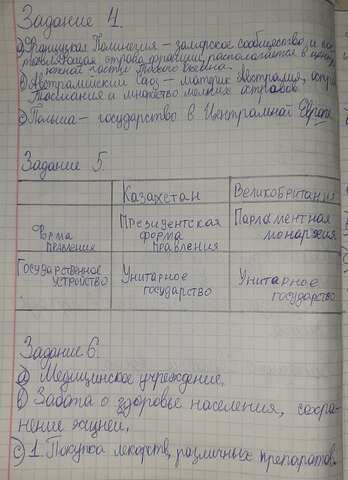 Задание 4.
a) Французкая Полинезия – заморское сообщество и
тавляющая острова Франции, располагается в центр
южной части Тихого океана.
b) Австралийский Союз – материк Австралия, остр
Тасмания и множество мелких островов.
c) Польша – государство в Центральной Европе
Задание 5.
Казахстан Великобритания
Форма правления Президентская форма правления Парламентная монархия
Государственное устройство Унитарное государство Унитарное государство
Задание 6.
a) Медицинское учреждение.
b) Забота о здоровье населения, сохра-
нение жизней.
c) 1. Покупка лекарств, различных препаратов.